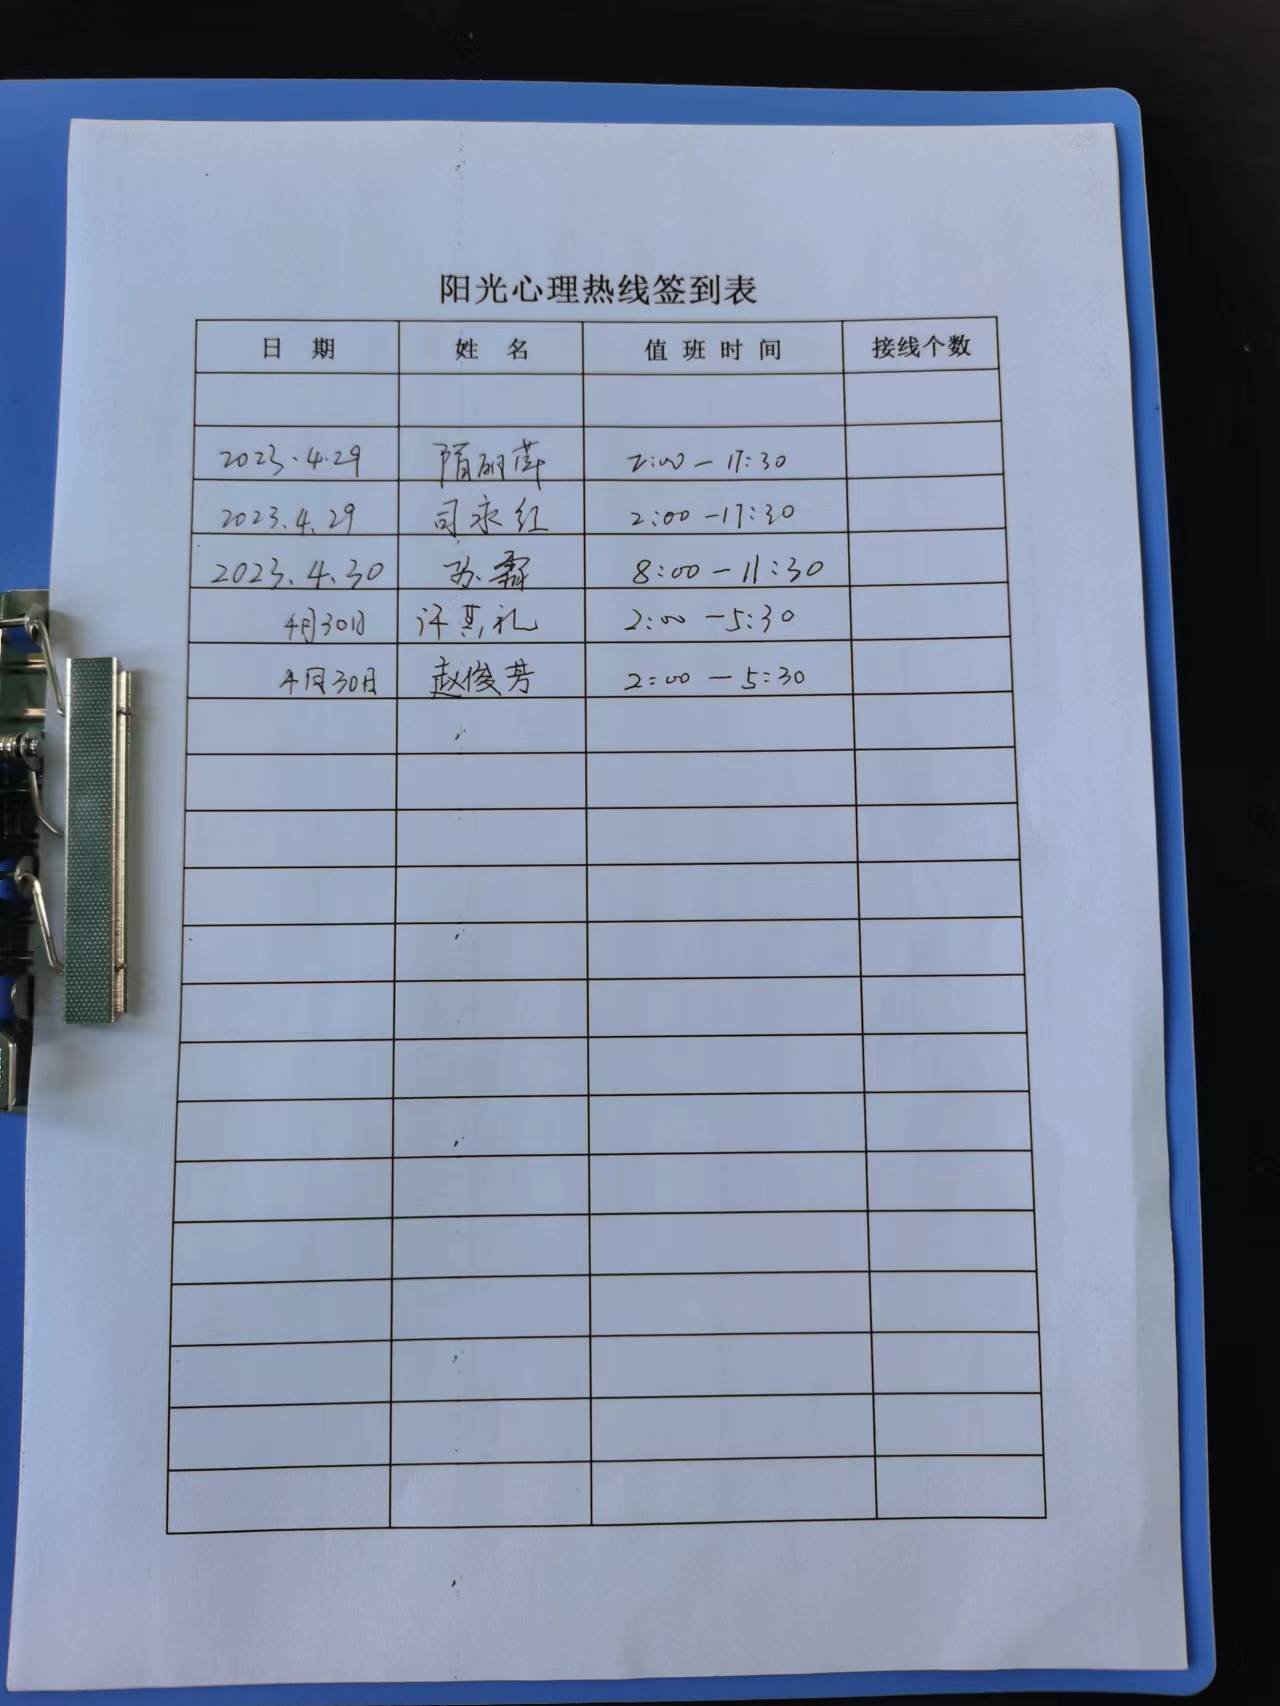 阳光心理热线签到表
日 期 姓 名 值班时间 接线个数
2023.4.29 隋丽萍 2:00-17:30
2023.4.29 司永红 2:00-17:30
2023.4.30 孙霖 8:00-11:30
4月30日 许其礼 2:00-5:30
4月30日 赵俊芳 2:00-5:30